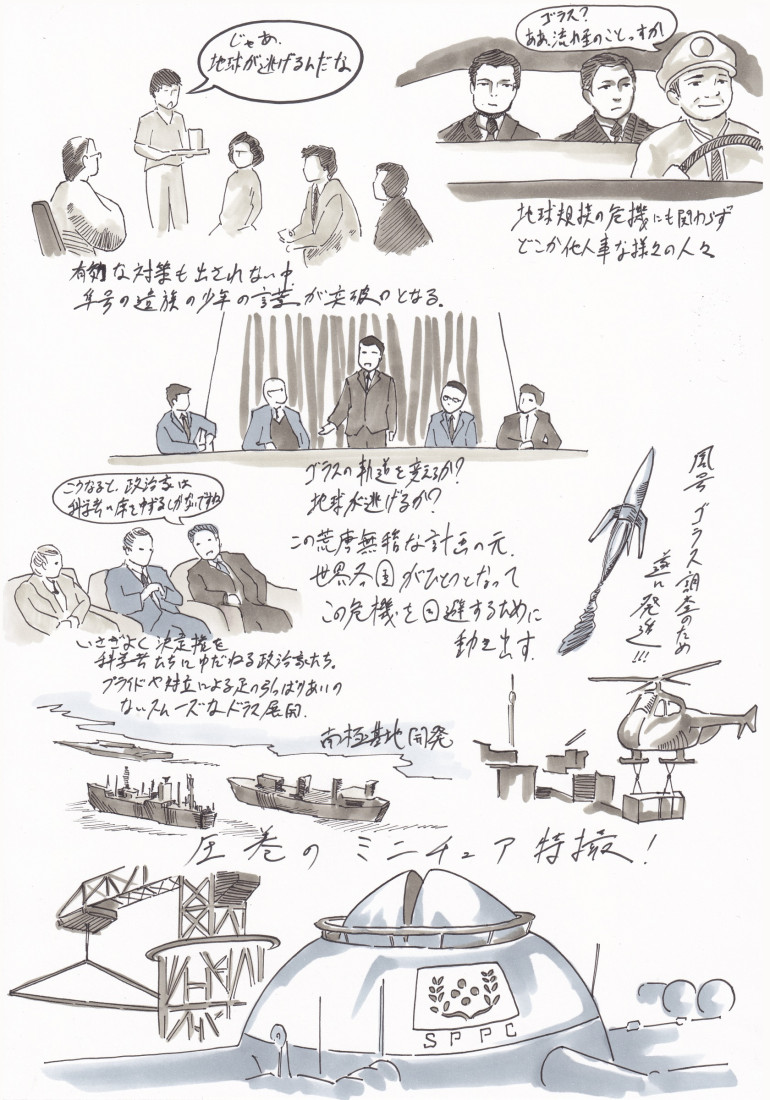 じゃあ、
地球が逃げるんだな
ゴラス?
ああ、流れ星のことっすか
地球規模の危機にも関わらず
どこか他人事な様々の人々
有効な対策も出されない中、
隼号の遺族の少年の言葉が突破口となる。
ゴラスの軌道を変えるか?
地球が逃げるか?
こうなると、政治家は
科学者に席をゆずるしかないですね
この荒唐無稽な計画の元、
世界各国がひとつとなって
この危機を回避するために
動き出す。
鳳号 ゴラス調査のため
遂に発進!!!
いさぎよく決定権を
科学者たちにゆだねる政治家たち。
プライドや対立による足の引っぱりあいの
ないスムーズなドラマ展開。
南極基地開発
圧巻のミニチュア特撮!
SPPC